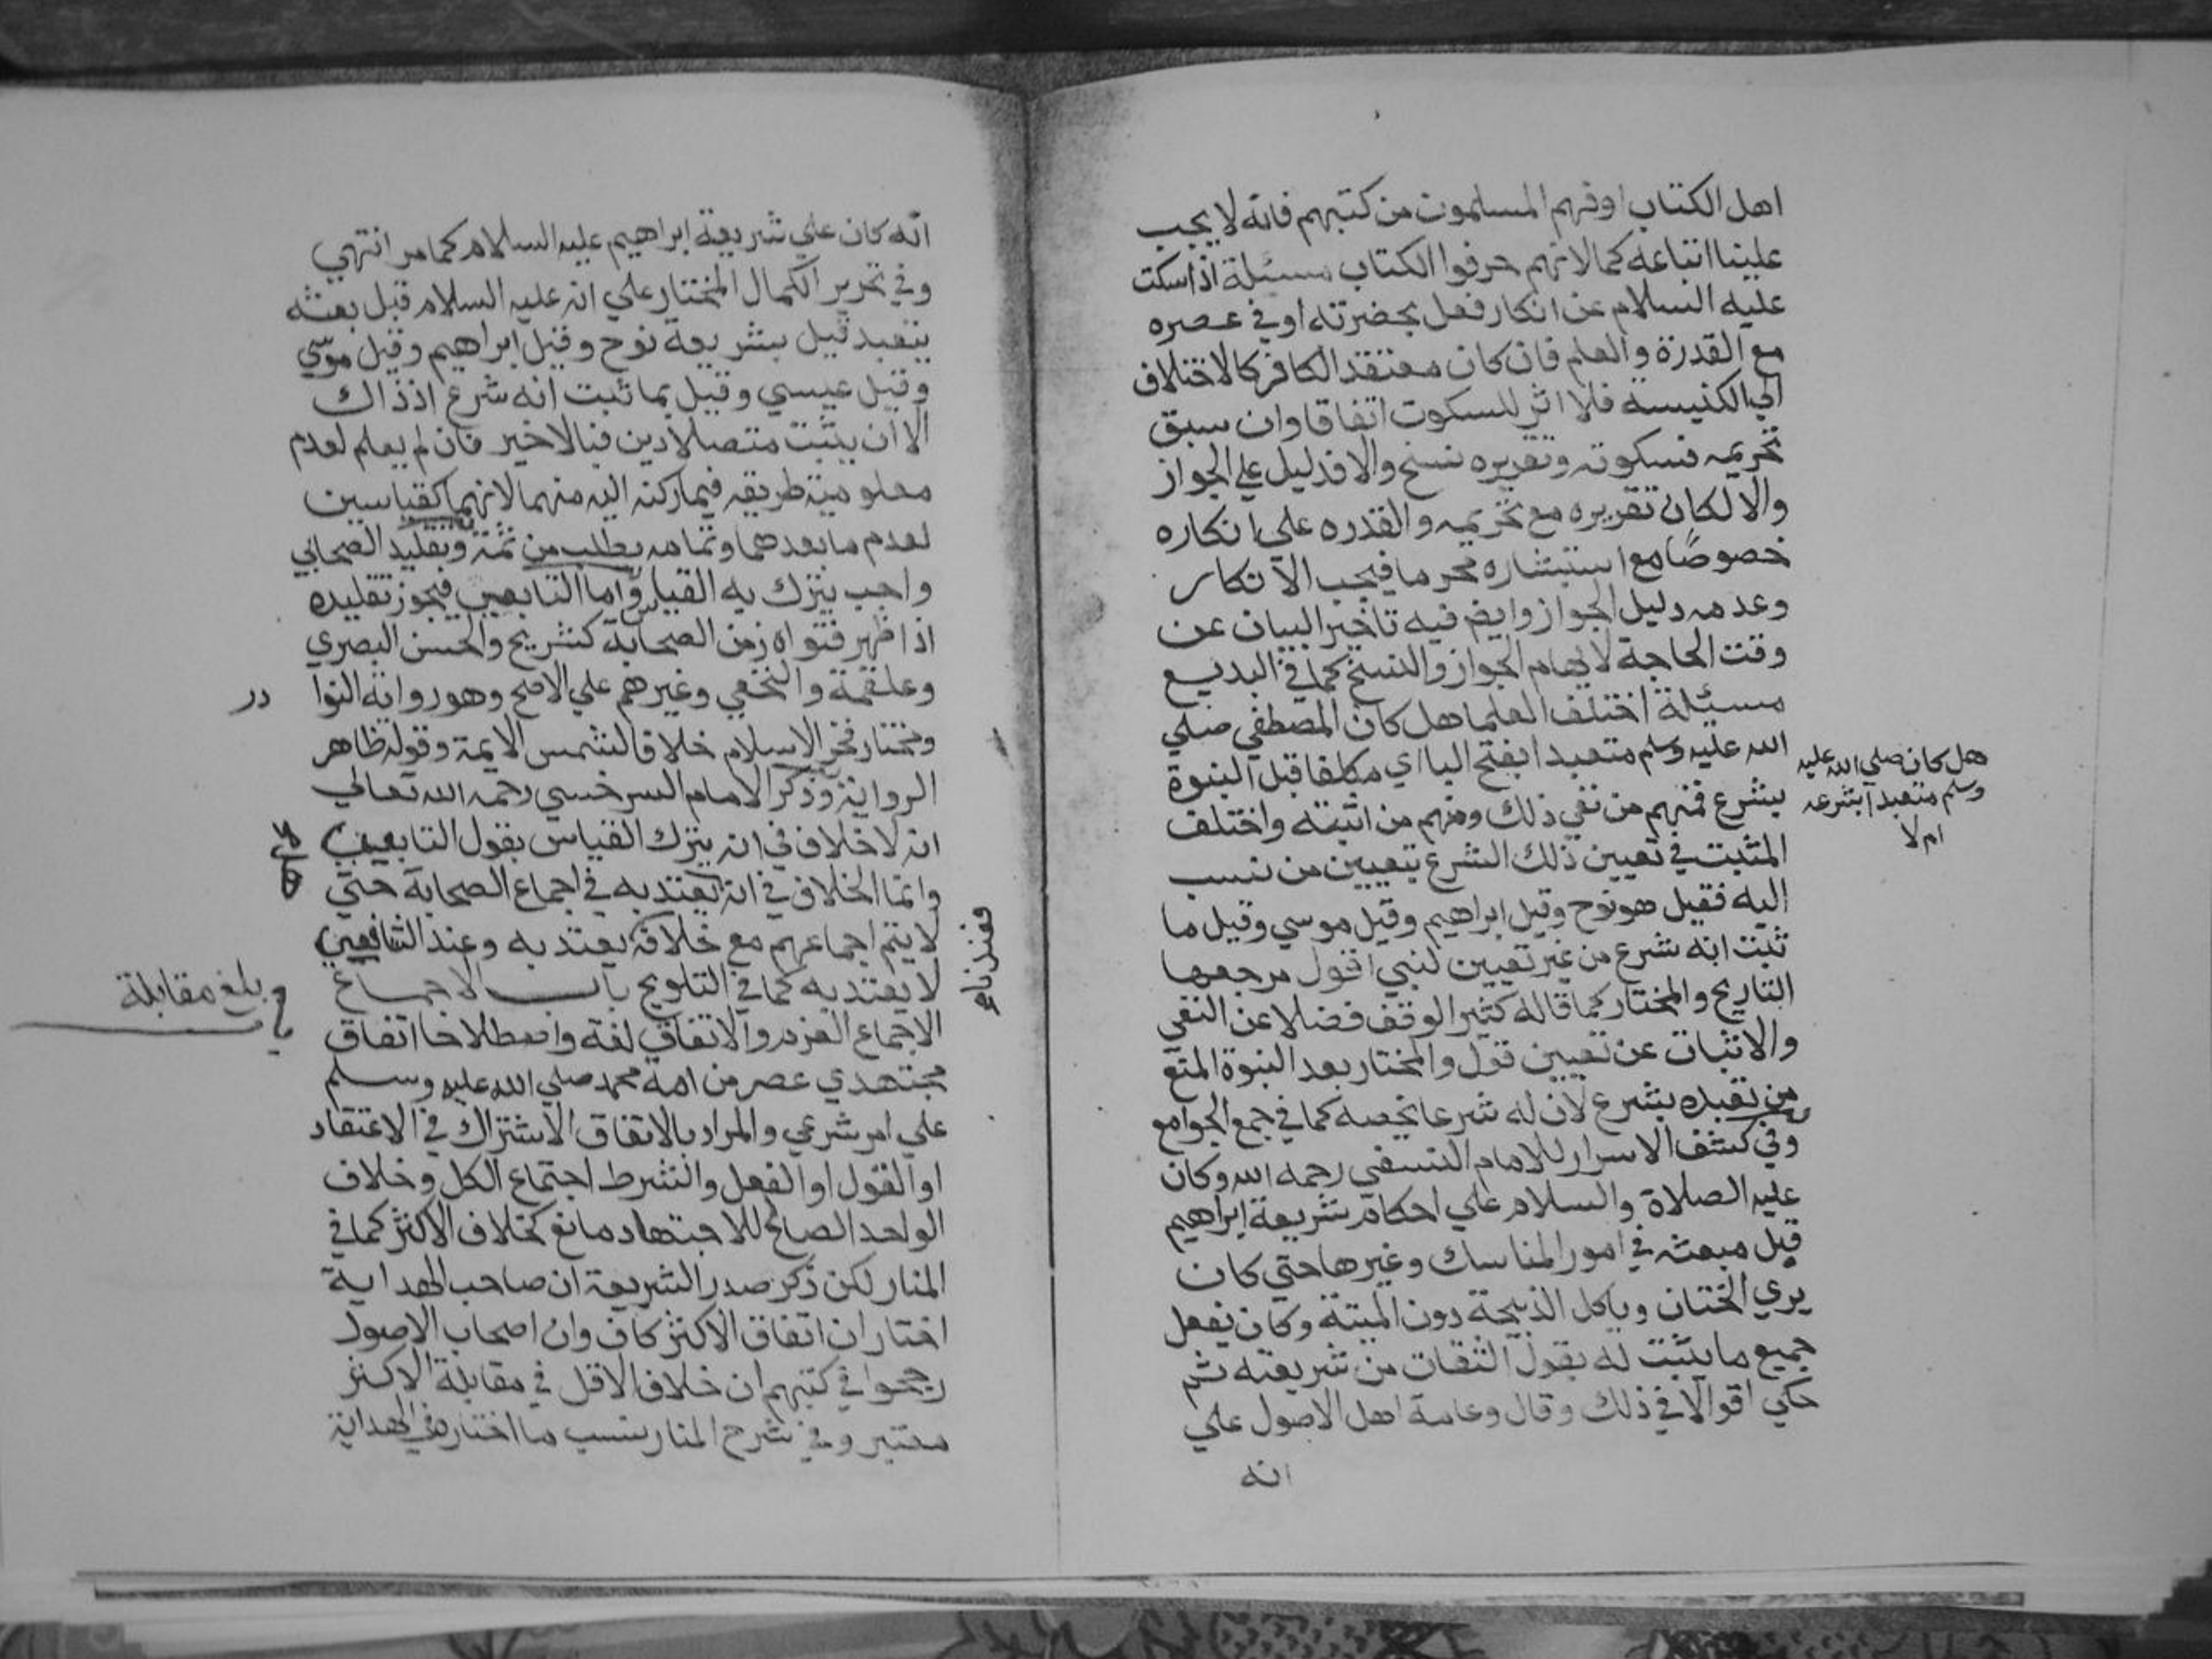 اهل الكتاب او فهم المسلمون من كتبهم فانه لا يجب
علينا اتباعه كمالا نهم حرفوا الكتاب مسئلة اذا سكت
عليه السلام عن انكار فعل بحضرته او في عصره
مع القدرة والعلم فان كان معتقد الكافر كالاختلاف
الي الكنيسه فلا اثر للسكوت اتفاقا وان سبق
تحريمه فسكوته وتقريره نسخ والا فدليل علي الجواز
والا لكان تقريره مع تحريمه والقدره علي انكاره
خصوصًا مع استبشاره محرما فيجب الانكار
وعدمه دليل الجواز وايض فيه تاخير البيان عن
وقت الحاجة لايهام الجواز والنسخ كما في البديع
مسئيلة اختلف العلما هل كان المصطفي صلي
الله عليه وسلم متعبدا بفتح الباا ي مكلفا قبل النبوة
بشرع فمنهم من نفي ذلك ومنهم من اثبته واختلف
المثبت في تعيين ذلك الشرع بتعيين من نسب
اليه فقيل هو نوح وقيل ابراهيم وقيل موسي وقيل ما
ثبت انه شرع من غير تعيين لنبي اقول مرجعها
التاريخ والمختار كما قاله كثير الوقف فضلا عن النفي
والاثبات عن تعيين قول والمختار بعد النبوة المنع
من تعبده بشرع لان له شرعا يخصه كما في جمع الجوامع
وفي كشف الاسرار للامام النسفي رحمه الله وكان
عليه الصلاة والسلام علي احكام شريعة ابراهيم
قبل مبعثه في امور المناسك وغيرها حتي كان
يري الختان وياكل الذبيحة دون الميتة وكان يفعل
جميع ما يثبت له بقول الثقات من شريعته ثم
حكي اقوالا في ذلك وقال وعامة اهل الاصول علي
انه
هل كان صلي الله عليه
وسلم متعبدا بشرعه
ام لا
انّه كان علي شريعة ابراهيم عليه السلام كما مر انتهي
وفي تحرير الكمال المختار علي انه عليه السلام قبل بعثه
يتعبد قيل بشريعة نوح وقيل ابراهيم وقيل موسي
وقيل عيسي وقيل بما ثبت انه شرع اذ ذاك
الا ان يثبت متصلا دين فبالاخير فان لم يعلم لعدم
معلومية طريقه فيما ركنه اليه منهما لانهما كقياسين
لعدم ما بعدهما وتمامه يطلب من ثمة وتقليد الصحابي
واجب يترك به القياس واما التابعين فيجوز تقليده
اذا ظهر فتواه زمن الصحابة كشريح والحسن البصري
وعلقمة والنخعي وغيرهم علي الاصح وهو رواية النوا
در
ومختار فخر الاسلام خلافا لشمس الايمة وقوله ظاهر
الرواية وذكر الامام السرخسي رحمه الله تعالي
انه لا خلاف في انه يترك القياس بقول التابعين
وانما الخلاف في انه يعتد به في اجماع الصحابة حتي
لا يتم اجماعهم مع خلافه يعتد به وعند الشافعين
فعندنا
لا يعتد به كما في التلويح باب الاجماع
بلغ مقابلة
الاجماع العزم والاتفاق لغة واصطلاحا اتفاق
مجتهدي عصر من امة محمد صلي الله عليه وسلم
علي امر شرعي والمراد بالاتفاق الاشتراك في الاعتقاد
او القول او الفعل والشرط اجتماع الكل وخلاف
الواحد الصالح للاجتهاد مانع كخلاف الاكثر كما في
المنار لكن ذكر صدر الشريعة ان صاحب الهداية
اختار ان اتفاق الاكثر كاف وان اصحاب الاصول
رجحوا في كتبهم ان خلاف الاقل في مقابلة الاكثر
معتبر وفي شرح المنار نسب ما اختاره في الهداية